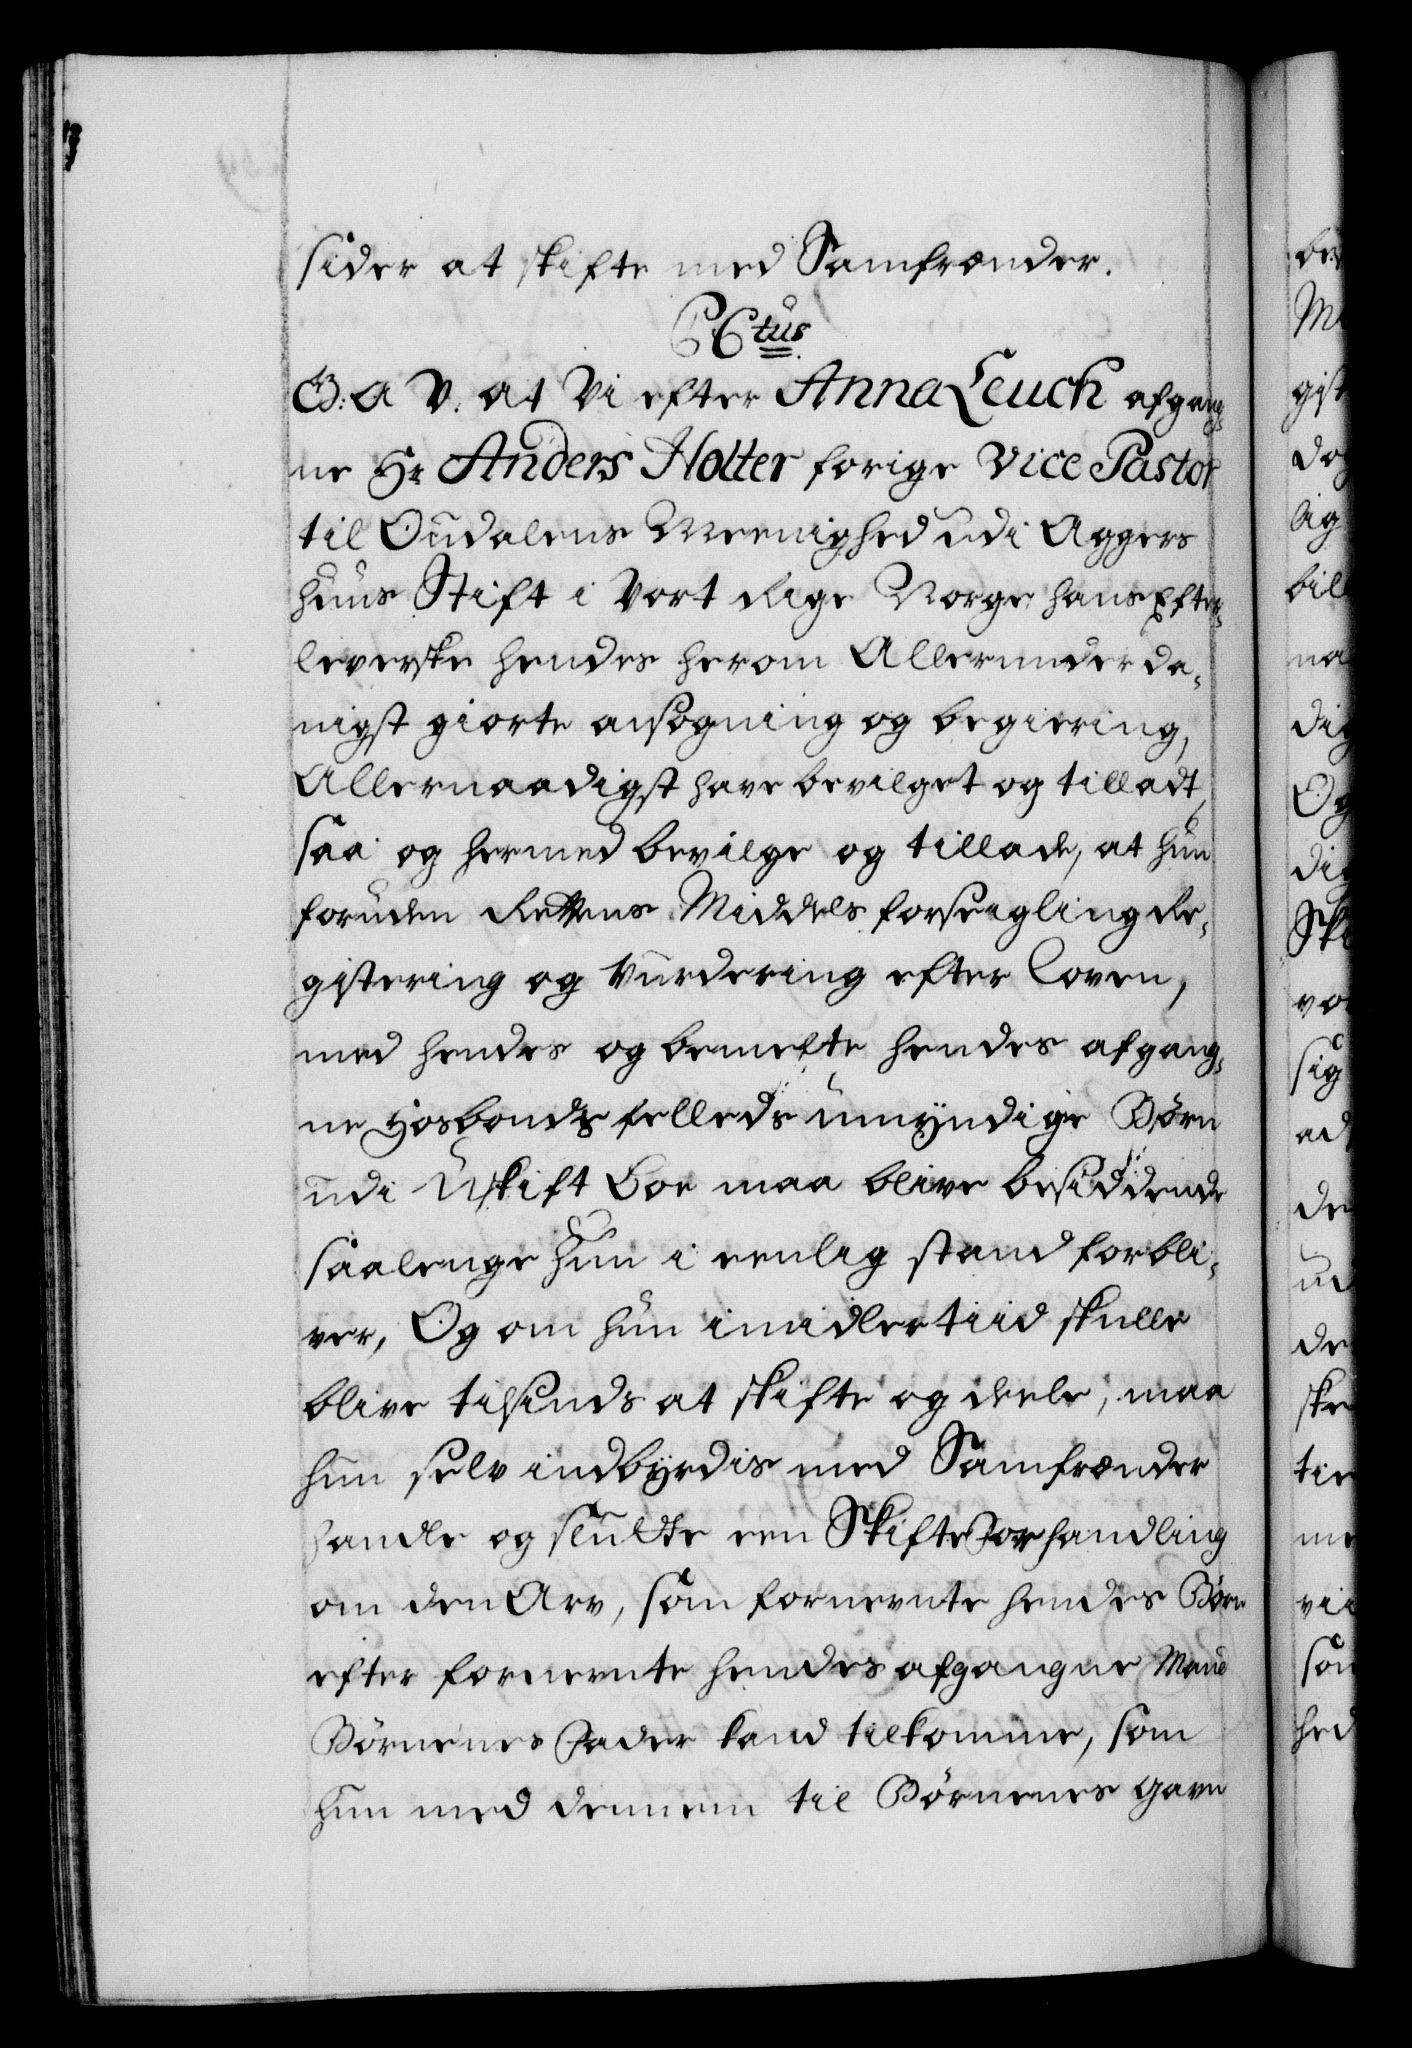 sider at skifte med Samfrænder.
C 6tus.
G: A V. at Vi efter Anna Leuch afgang¬
ne Hr Anders Holter forige Vice Pastor
til Oudalens Meenighed udi Aggers
huus Stift i Vort Rige Norge hans Efter¬
leverske hendes herom Allerunderda¬
nigst giorte ansøgning og begiering,
Allernaadigst have bevilget og tilladt,
saa og hermed bevilge og tillade, at hun
foruden Rettens Middels forseigling Re¬
gistering og Vurdering efter Loven,
med hendes og bemelte hendes afgang¬
ne Hosbonds felleds umyndige Børn
udi Uskift Boe maa blive besiddende
saalenge hun i eenlig stand forbli¬
ver, Og om hun imidlertiid skulle
blive tilsinds at skifte og deele, maa
hun selv indbyrdis med Samfrænder
handle og slutte een Skifte Forhandling
om den Arv, som fornevnte hendes Børn
efter fornevnte hendes afgangne Mand
Børnenes Fader kand tilkomme, som
hun med dennem til Børnenes Gavn